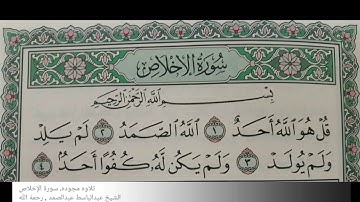 سُورَةُ الْإِخْلَاصِ
بِسْمِ اللَّهِ الرَّحْمَٰنِ الرَّحِيمِ
قُلْ هُوَ اللَّهُ أَحَدٌ ١ اللَّهُ الصَّمَدُ ٢ لَمْ يَلِدْ
وَلَمْ يُولَدْ ٣ وَلَمْ يَكُن لَّهُ كُفُوًا أَحَدٌ ٤
تلاوه مجوده، سورة الإخلاص
الشيخ عبدالباسط عبدالصمد , رحمة الله